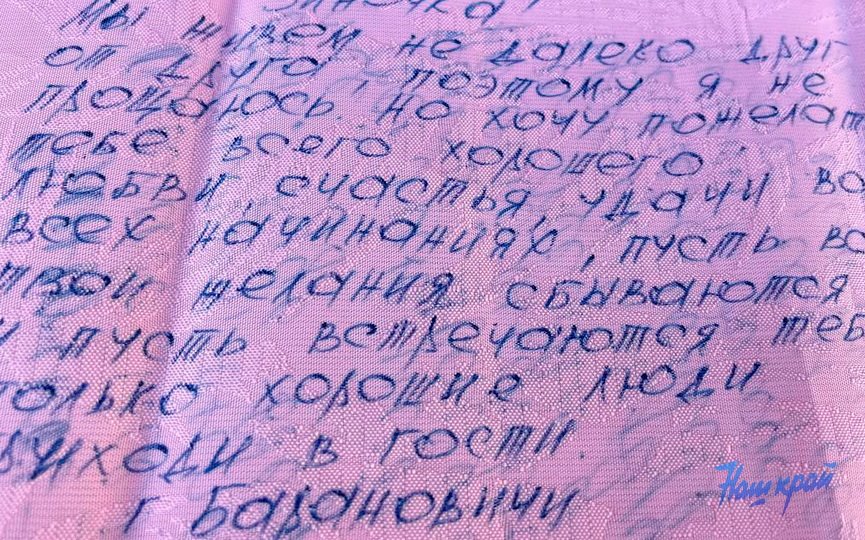 Мы живем не далеко друг
от друга, поэтому я не
прощаюсь. Но хочу пожелат
тебе всего хорошего
любви, счастья, удачи во
всех начинаниях, пусть вс
твои желания сбываются
и пусть встречаются теб
только хорошие люди
приходи в гости.
г Барановичи
Наш край